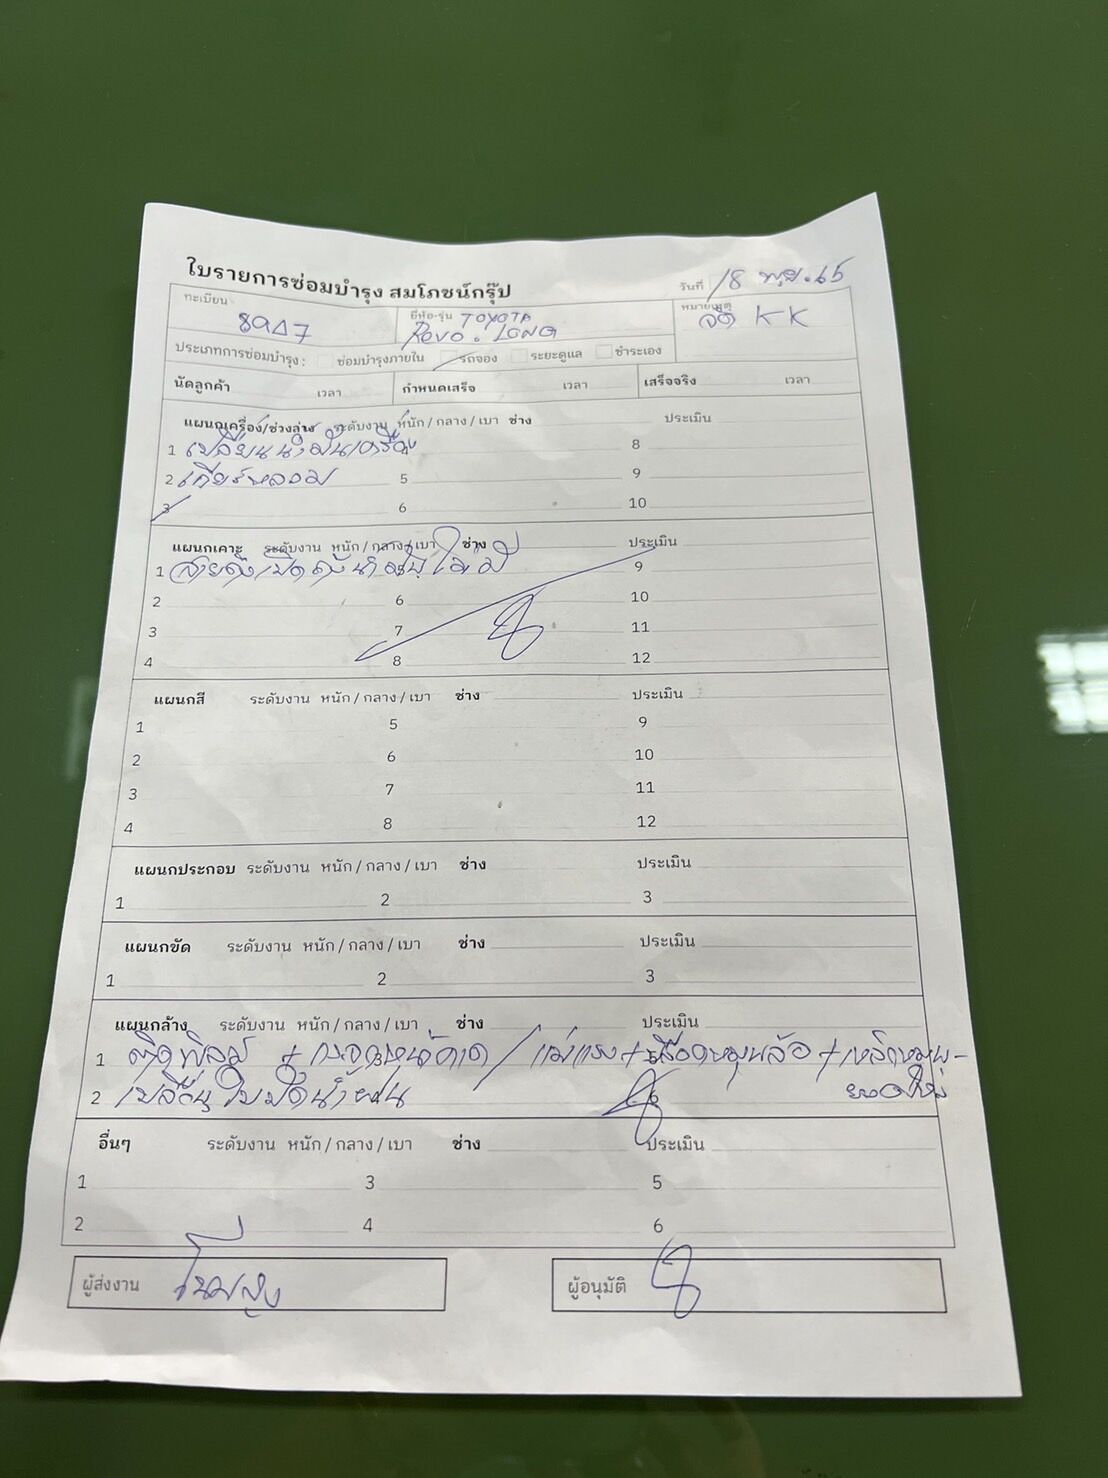 ใบรายการซ่อมบำรุง สมโภชน์กรุ๊ป
วันที่ 18 พ.ย. 65
ทะเบียน
ยี่ห้อ-รุ่น TOYOTA
Revo. LONG
หมายเหตุ
KK
ประเภทการซ่อมบำรุง: ซ่อมบำรุงภายใน รถจอง ระยะดูแล ชำระเอง
นัดลูกค้า เวลา กำหนดเสร็จ เวลา เสร็จจริง เวลา
แผนกเครื่อง/ช่วงล่าง ระดับงาน หนัก / กลาง / เบา ช่าง ประเมิน
1 เปลี่ยนน้ำมันเครื่อง 8
2 เกียร์หลวม 5 9
3 6 10
แผนกเคาะ ระดับงาน หนัก / กลาง / เบา ช่าง ประเมิน
1 9
2 6 10
3 7 11
4 8 12
แผนกสี ระดับงาน หนัก / กลาง / เบา ช่าง ประเมิน
1 5 9
2 6 10
3 7 11
4 8 12
แผนกประกอบ ระดับงาน หนัก / กลาง / เบา ช่าง ประเมิน
1 2 3
แผนกขัด ระดับงาน หนัก / กลาง / เบา ช่าง ประเมิน
1 2 3
แผนกล้าง ระดับงาน หนัก / กลาง / เบา ช่าง ประเมิน
1 ติดฟิลม์ + / แม่แรง +
2 เปลี่ยนใบปัดน้ำฝน 6
อื่นๆ ระดับงาน หนัก / กลาง / เบา ช่าง ประเมิน
1 3 5
2 4 6
ผู้ส่งงาน
ผู้อนุมัติ